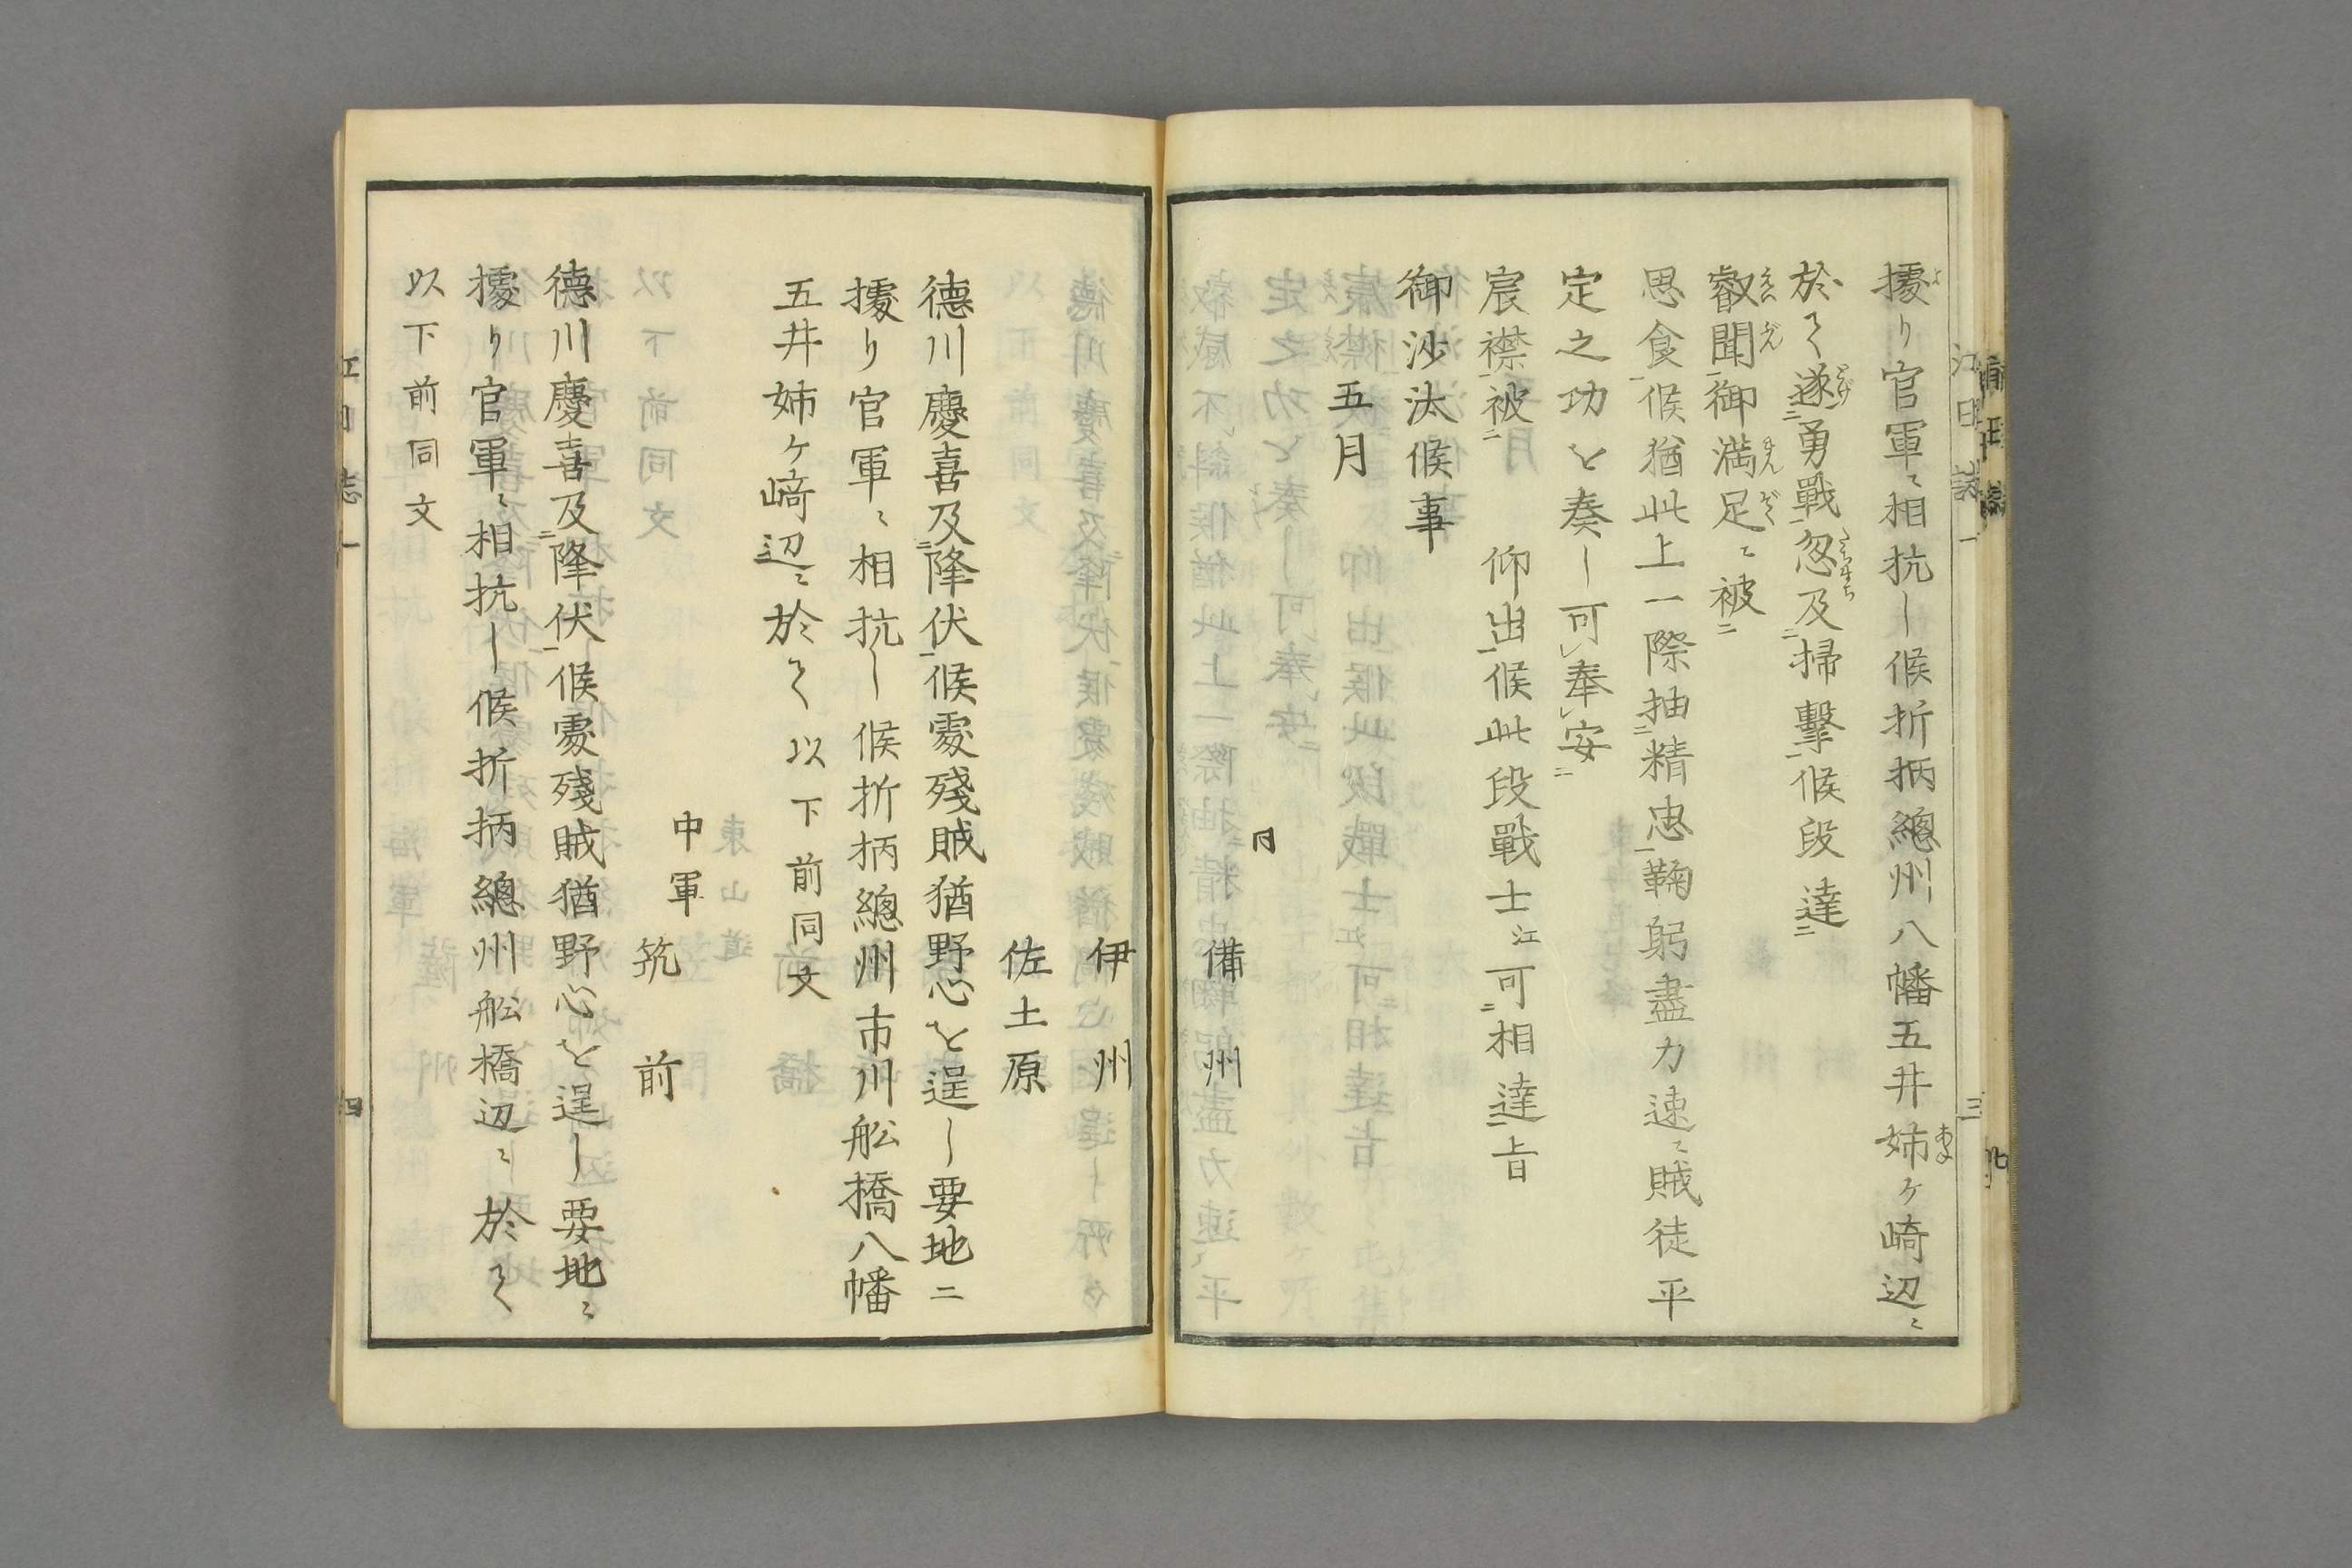 據り官軍ニ相抗し候折柄總州八幡五井姉ケ崎辺ニ
於て遂ニ勇戰一忽及ニ掃擊一候段達ニ
叡聞一御満足ニ被ニ
思食一候猶此上一際抽ニ精忠一鞠躬盡力速ニ賊徒平
定之功を奏し可レ奉レ安ニ
宸襟一被ニ仰出一候此段戰士江可ニ相達一旨
御沙汰候事
五月
同
備州
伊州
佐土原
德川慶喜及ニ降伏一候處殘賊猶野心を逞し要地ニ
據り官軍ニ相抗し候折柄總州市川舩橋八幡
五井姉ケ﨑辺ニ於て以下前同文
中軍
筑前
德川慶喜及ニ降伏一候處殘賊猶野心を逞し要地ニ
據り官軍ニ相抗し候折柄總州舩橋辺ニ於て
以下前同文
江日志一
四